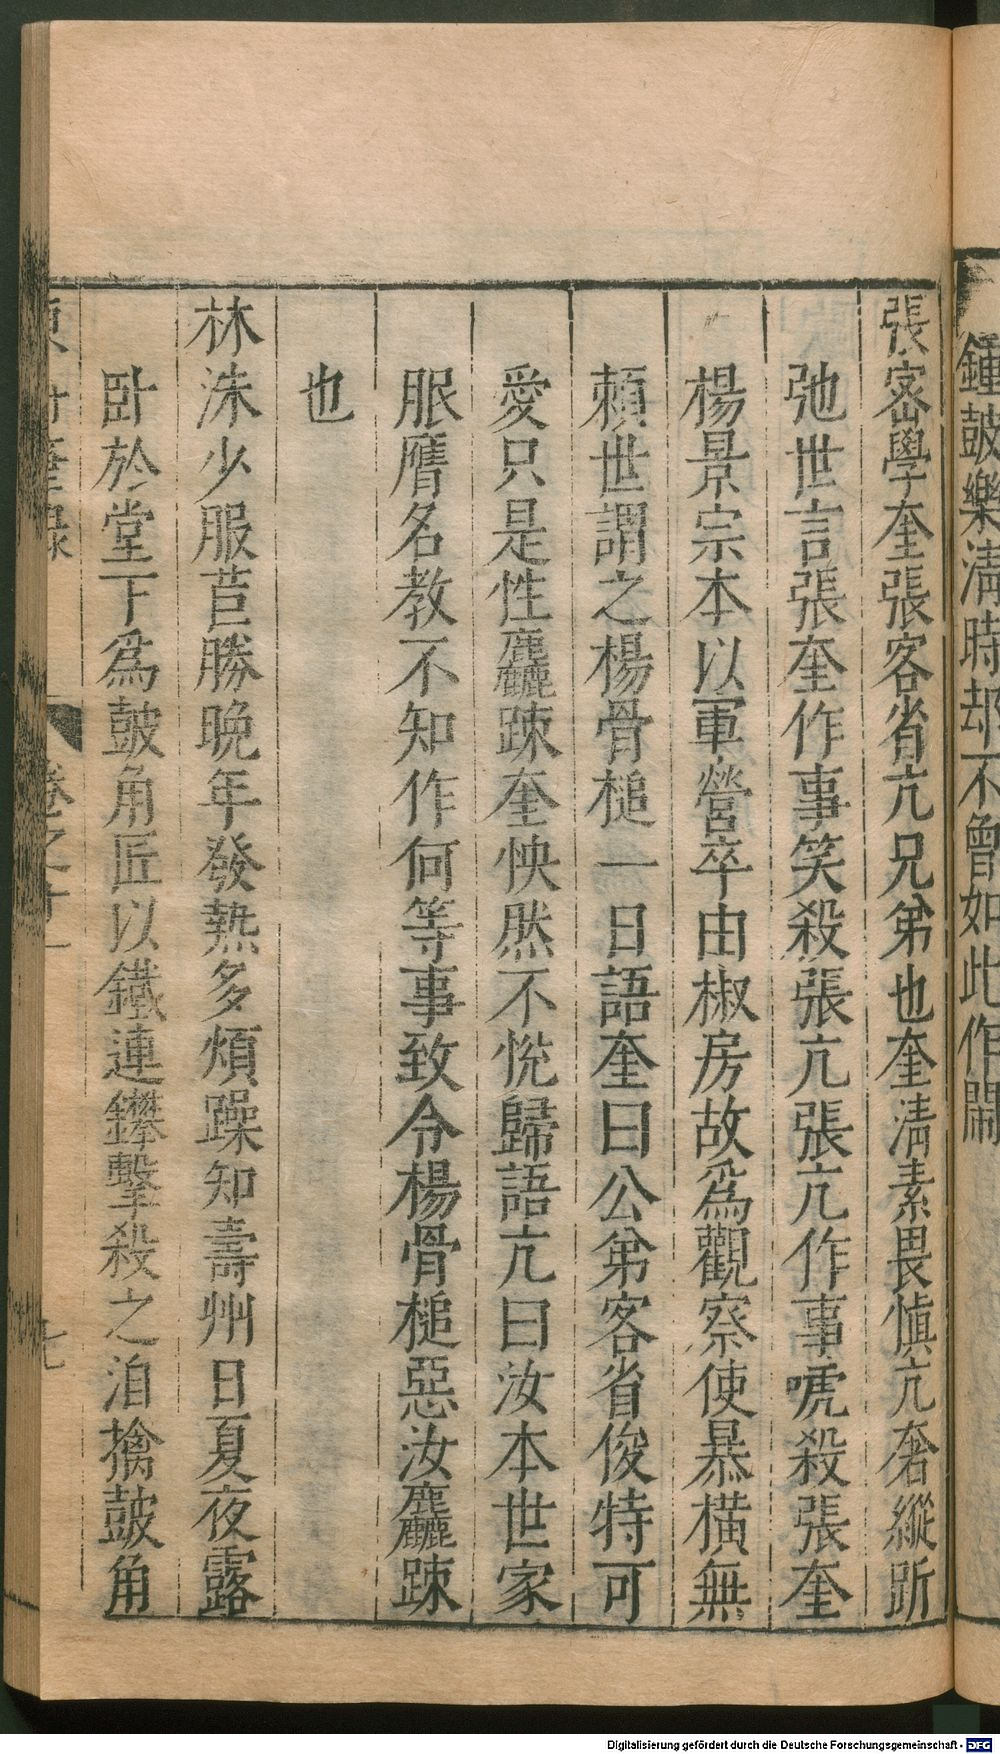 鍾鼓樂淸時却不曾如此作鬧
張宻學奎張客省亢兄弟也奎淸素畏愼亢奢縱跅
弛世言張奎作事笑殺張亢張亢作事唬殺張奎
楊景宗本以軍營卒由椒房故爲觀察使暴橫無
賴世謂之楊骨槌一日語奎曰公弟客省俊特可
愛只是性麤踈奎怏然不悅歸語亢曰汝本世家
服膺名教不知作何等事致令楊骨槌惡汝麤踈
也
林洙少服苣勝晚年發熱多煩躁知壽州日夏夜露
卧於堂下爲鼓角匠以鐵連鑻擊殺之洎擒鼓角
東軒筆録
卷之十一
七
Digitalisierung gefördert durch die Deutsche Forschungsgemeinschaft - DFG